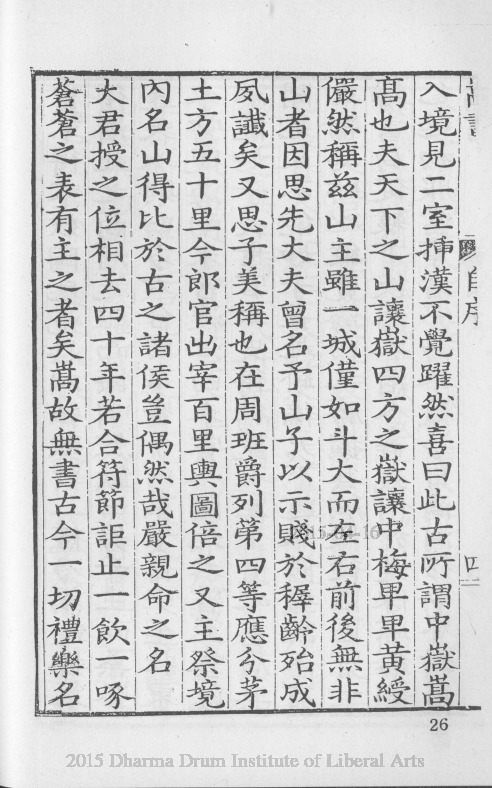 嵩書
自序
四
入境見二室揷漢不覺躍然喜曰此古所謂中嶽嵩
髙也夫天下之山讓嶽四方之嶽讓中梅卑卑黃綬
儼然稱兹山主雖一城僅如斗大而左右前後無非
山者因思先大夫曾名予山子以示賤於穉齡殆成
夙讖矣又思子美稱也在周班爵列第四等應分茅
土方五十里今郎官出宰百里輿圖倍之又主祭境
內名山得比於古之諸侯豈偶然哉嚴親命之名
大君授之位相去四十年若合符節詎止一飲一啄
蒼蒼之表有主之者矣嵩故無書古今一切禮樂名
26
2015 Dharma Drum Institute of Liberal Arts